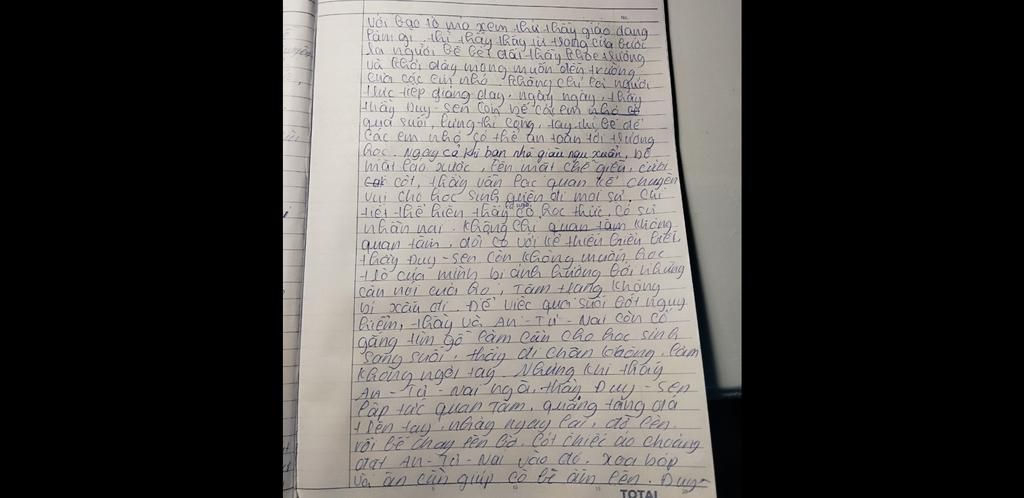 No.
với bao tò mò xem thử thầy giáo đang
làm gì, thì thấy thầy từ trong cửa bước
ra người bê bết đất thầy khoe trường
và khơi dậy mong muốn đến trường
của các em nhỏ. Không chỉ là người
trực tiếp giảng dạy, ngày ngày, thầy
thầy Duy-sen còn bế các em nhỏ
qua suối, lưng thì cõng, tay thì bế để
các em nhỏ có thể an toàn tới trường
học. Ngay cả khi bọn nhà giàu ngu xuẩn, bộ
mặt láo xược, lên mặt chế giễu, cười
cợt, thầy vẫn lạc quan kể chuyện
vui cho học sinh quên đi mọi sự. Chi
tiết thể hiện thầy có học thức, có sự
nhẫn nại. Không chỉ quan tâm không
quan tâm, đối với kẻ thiếu hiểu biết,
thầy Duy-sen còn không muốn học
trò của mình bị ảnh hưởng bởi những
câu nói của họ, tâm trạng không
bị xấu đi. Để việc qua suối bớt nguy
hiểm, thầy và An-Tư-Nai còn cố
gắng tìm gỗ làm cầu cho học sinh
sang suối, thầy đi chân không, làm
không ngơi tay. Nhưng khi thấy
An-Tư-Nai ngã, thầy Duy-sen
lập tức quan tâm, quăng tảng đá
trên tay, nhảy ngay lại, đỡ lên
rồi bế chạy lên bờ. Lót chiếc áo choàng
đặt An-Tư-Nai vào đó, xoa bóp
và ân cần giúp cô bé ấm lên. Duy-
TOTAL